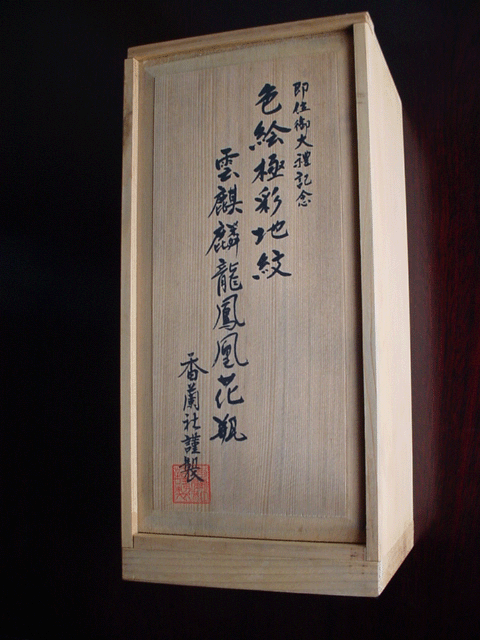 即位御大禮記念
色絵極彩地紋
雲麒麟龍鳳凰花瓶
香蘭社謹製